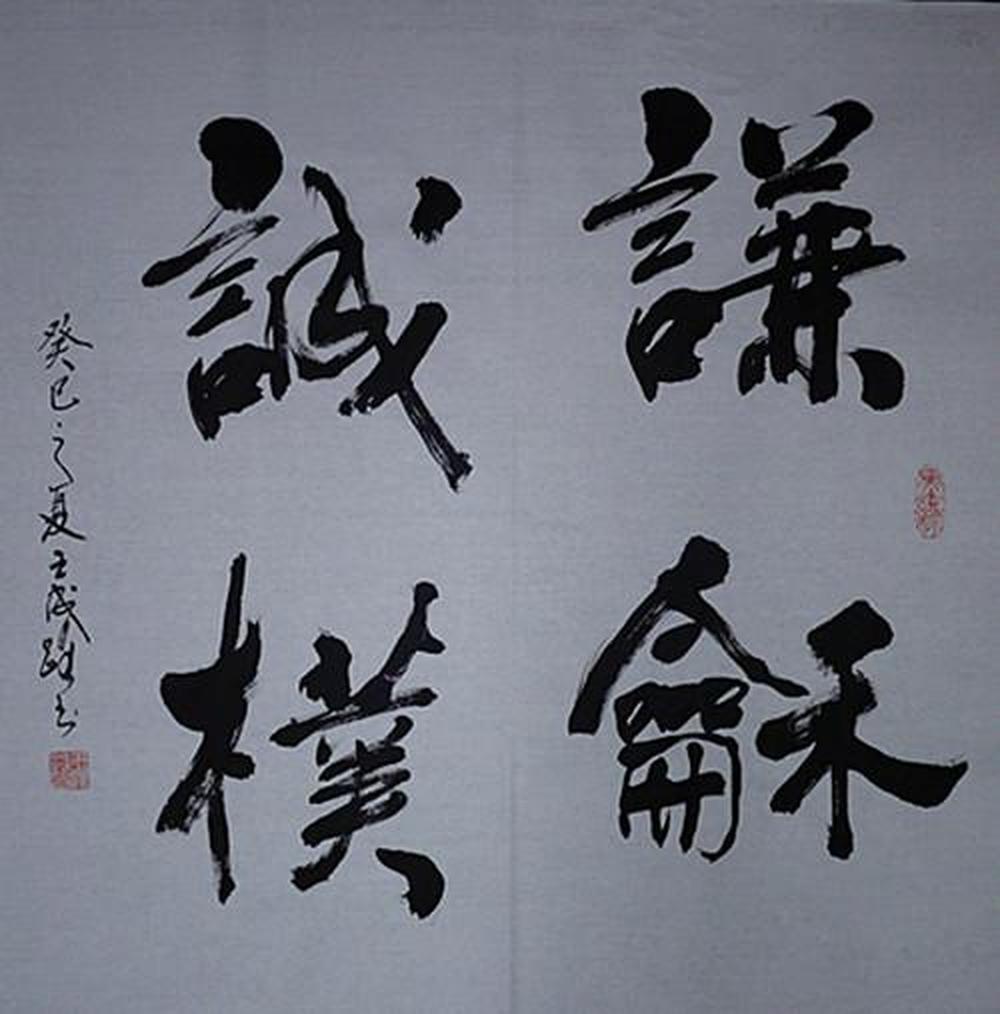 謙龢
誠樸
癸巳之夏王成跳书